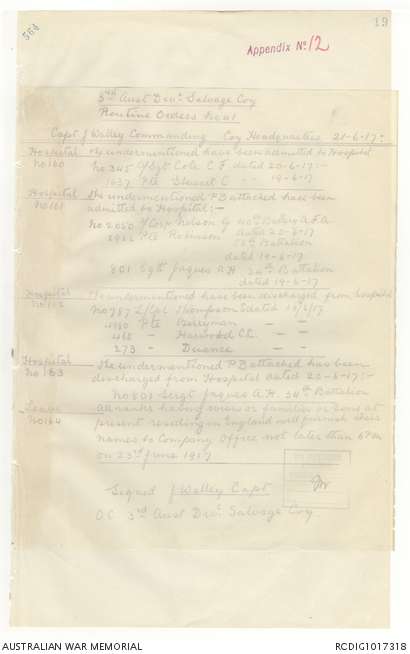 564
19
Appendix No 12
3rd Aust Divn. Salvage Coy
Routine Orders No 41
Capt J Welley Commanding Coy Headquarters 21-6-17
Hospital The undermentioned have been admitted to Hospital
No 160 No 345 C.F. dated 20-6-17
1037 Pte Stewart C " 19-6-17
Hospital The undermentioned P.B attached have been
No 161 admitted to Hospital:-
Nelson G A.F.A
Pte Robinson dated 20-6-17
Battalion
dated 19-6-17
801 Sgt Jaques A.H. 34th Battalion
dated 19-6-17
Hospital The undermentioned have been discharged from hospital
No 162 No 787 L/Cpl Thompson dated
Pte Berryman
468 " Harwood C.L.
273 "
Hospital The undermentioned P.B attached has been
No 163 discharged from Hospital dated 20-6-17:-
No 801 Sergt Jaques A.H. 34th Battalion
Leave All ranks having wives or families or sons at
No 164 present residing in England will furnish their
names to Company Office not later than 6 P.m
on 23rd June 1917
Signed J Welley Capt
O.C 3rd Aust Divn. Salvage Coy
AUSTRALIAN WAR MEMORIAL
RCDIG1017318